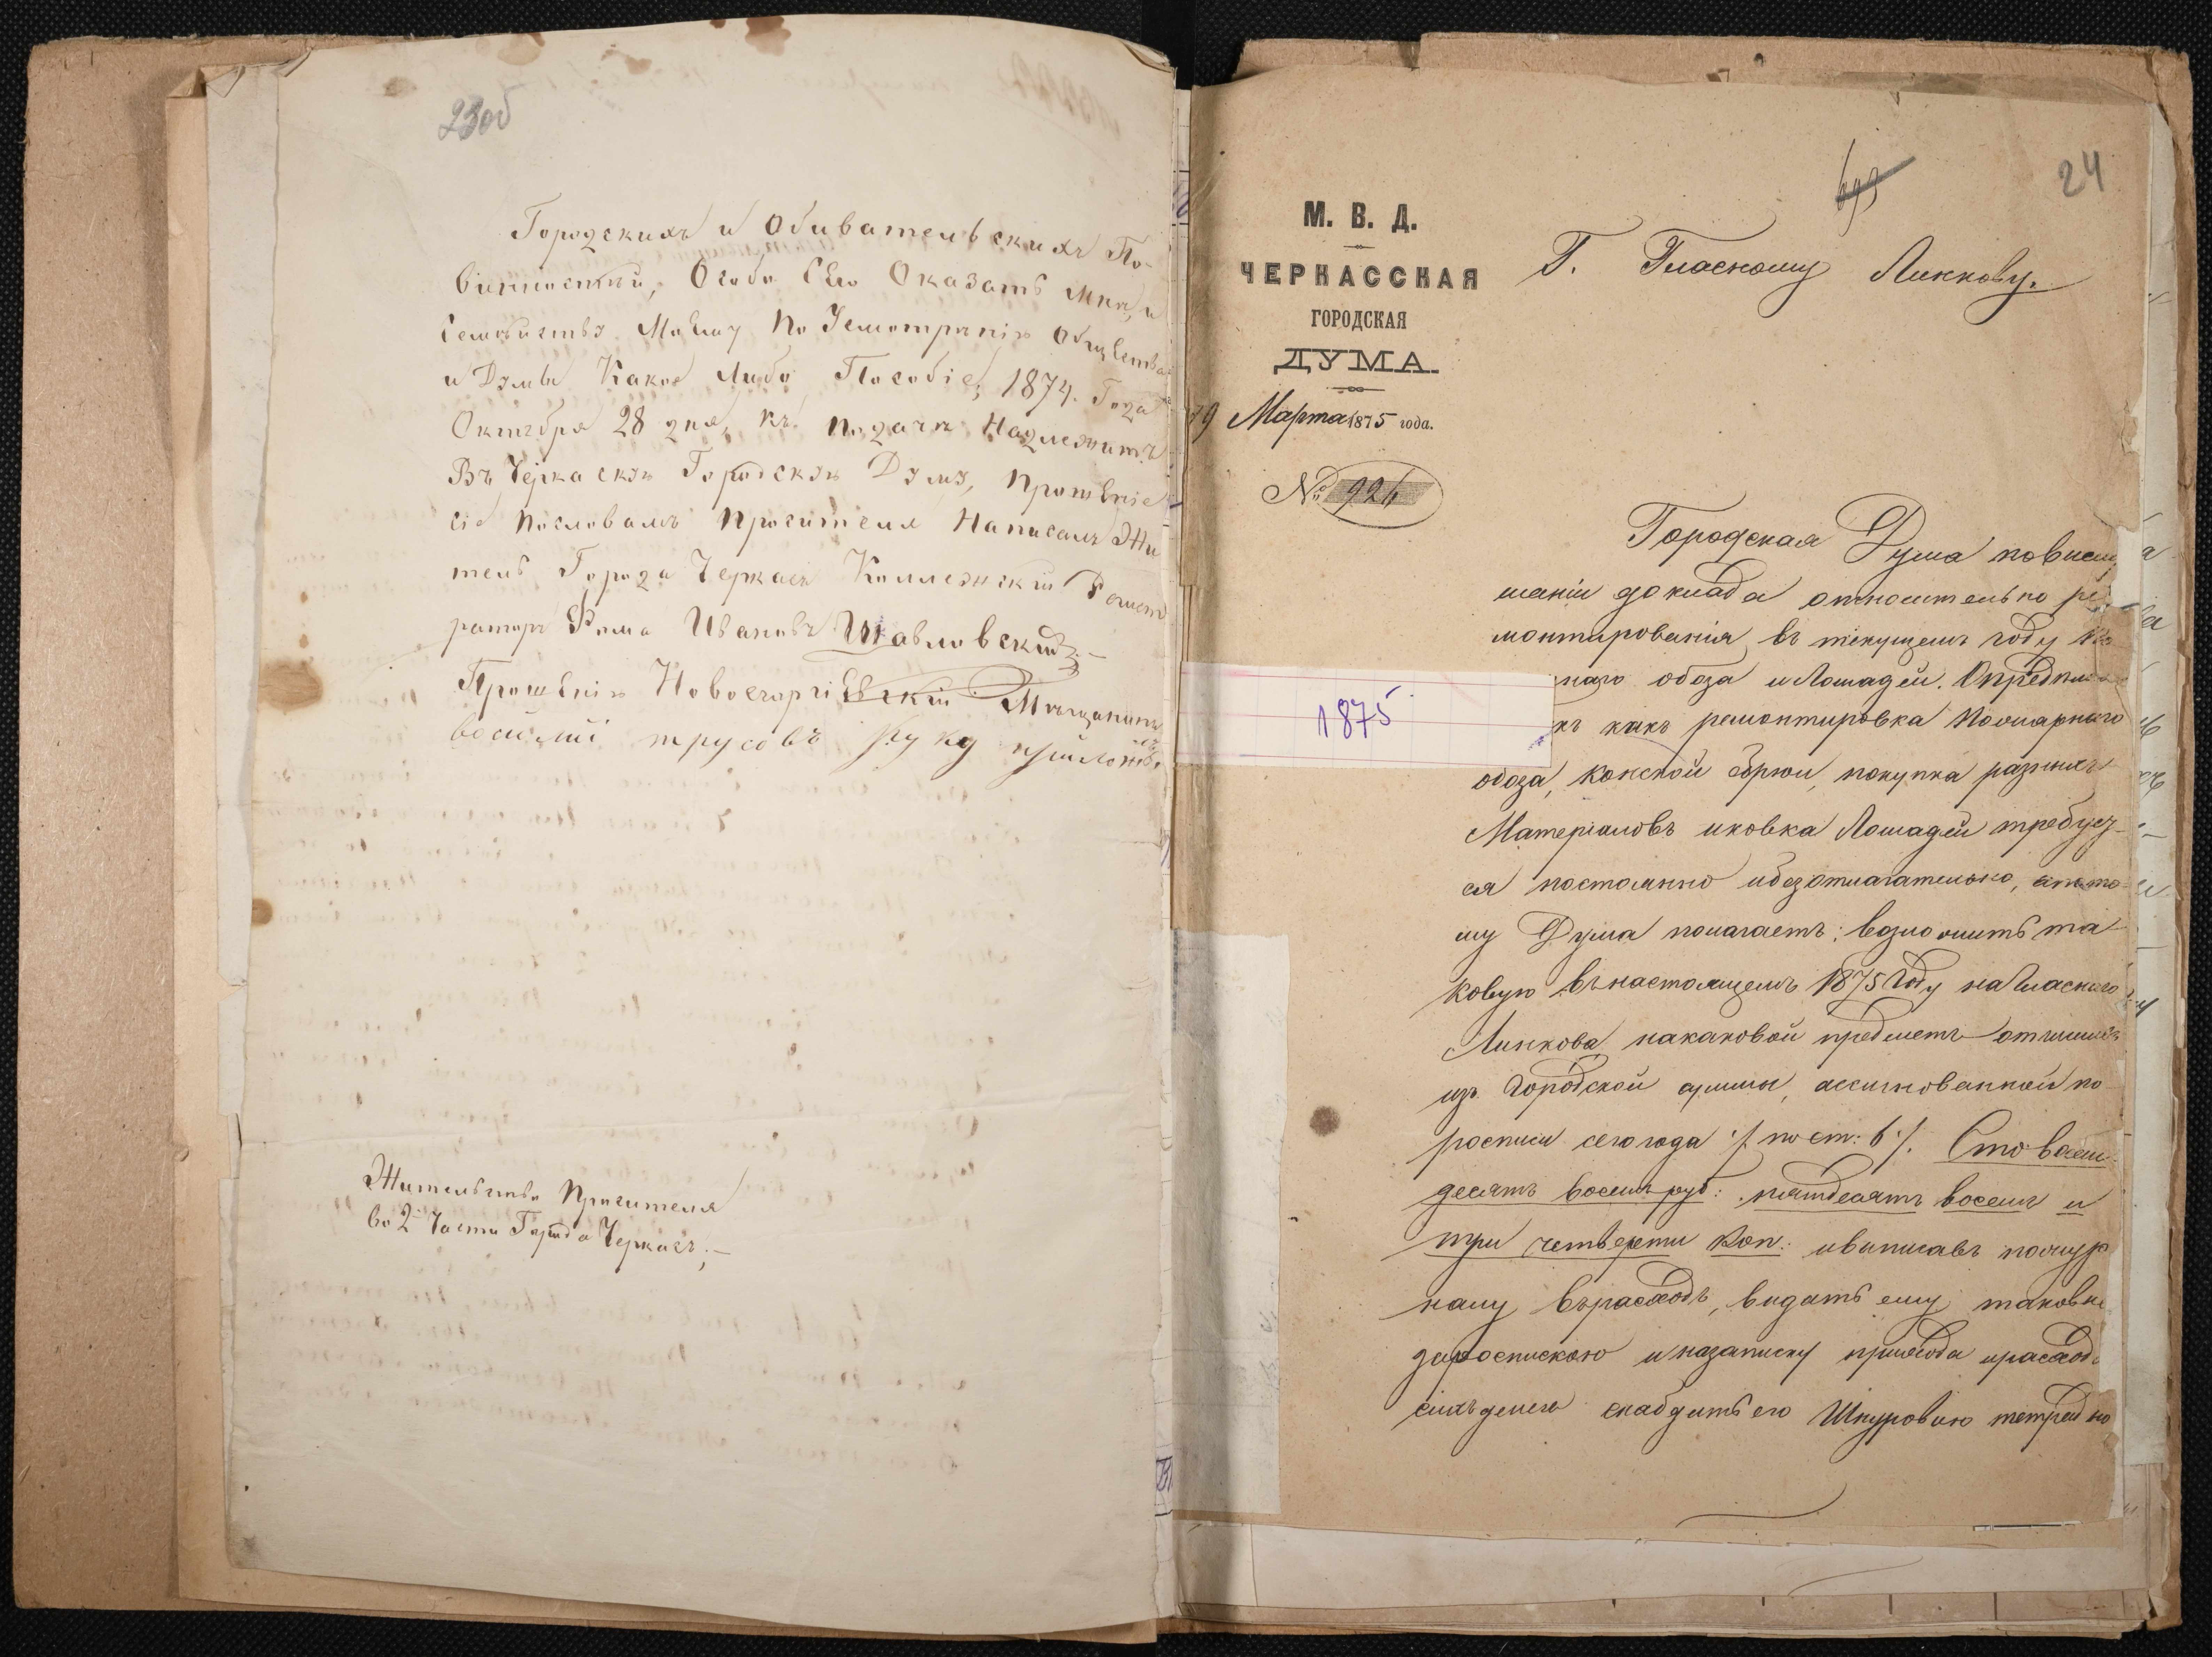 23об
Городскихъ и Обивательскихъ По-
винностей, Особо Сего Оказать Мнѣ, и
Семѣйству Моему По Усмотрѣнію Общества
и Думы Какое Либо Пособіе, 1874. Года
Октября 28 дня, къ подачѣ Надлежитъ
Въ Черкаскую Городскую Думу, Прошеніе
сіе пословамъ просителя Написалъ Жи
тель Города Черкасъ Коллежскій Регист
раторъ Фома Ивановъ Шавловскій.-
Прошенію Новогеоргіевскій Мѣщанинъ
трусовъ руку приложивъ
Жительство Просителя
во 2й Части Города Черкасъ;-
24
М. В. Д.
ЧЕРКАССКАЯ
ГОРОДСКАЯ
ДУМА.
19 Марта 1875 года.
№ 924
Г. Гласному Линкову.
Городская Дума повыслу
шаніи доклада относительно ре
монтированія въ текущемъ году
наго обоза и Лошадей. Опредѣли
1875
къ какъ ремонтировка Пожарнаго
обоза, конской збруи, покупка разныхъ
Матеріаловъ и ковка Лошадей требует-
ся постоянно и безотлагательно, а пото
му Дума полагаетъ: возложить та
ковую въ настоящемъ 1875 Году на Гласнаго
Линкова, на каковой предметъ отчислить
изъ Городской суммы, ассигнованной по
росписи сего года /: по ст: 6 :/. Сто восем-
десятъ восемь руб: пятдесятъ восемь и
три четверти коп: и выписавъ по журъ
налу въ расходъ, выдать ему таковые
за роспискою и на записку прихода и расхода
сихъ денегъ снабдить его Шнуровою тетрадью